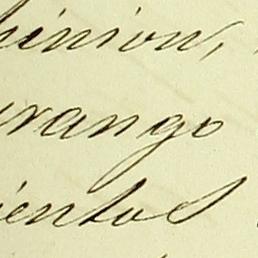 hinion,
urango
ientos